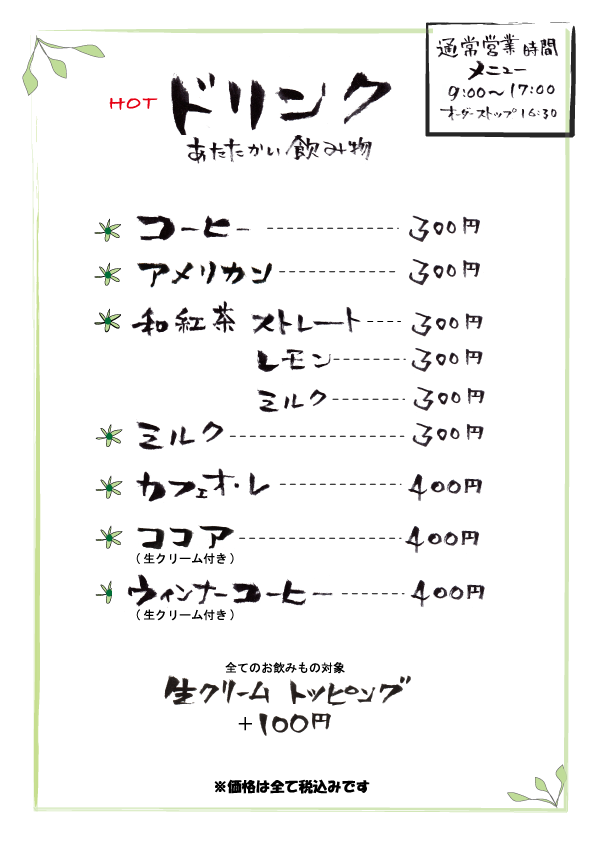 通常営業時間
メニュー
9:00～17:00
オーダーストップ 16:30
HOT ドリンク
あたたかい飲み物
コーヒー 300円
アメリカン 300円
和紅茶 ストレート 300円
レモン 300円
ミルク 300円
ミルク 300円
カフェオ・レ 400円
ココア 400円
(生クリーム付き)
ウィンナーコーヒー 400円
(生クリーム付き)
全てのお飲みもの対象
生クリーム トッピング
+100円
※価格は全て税込みです